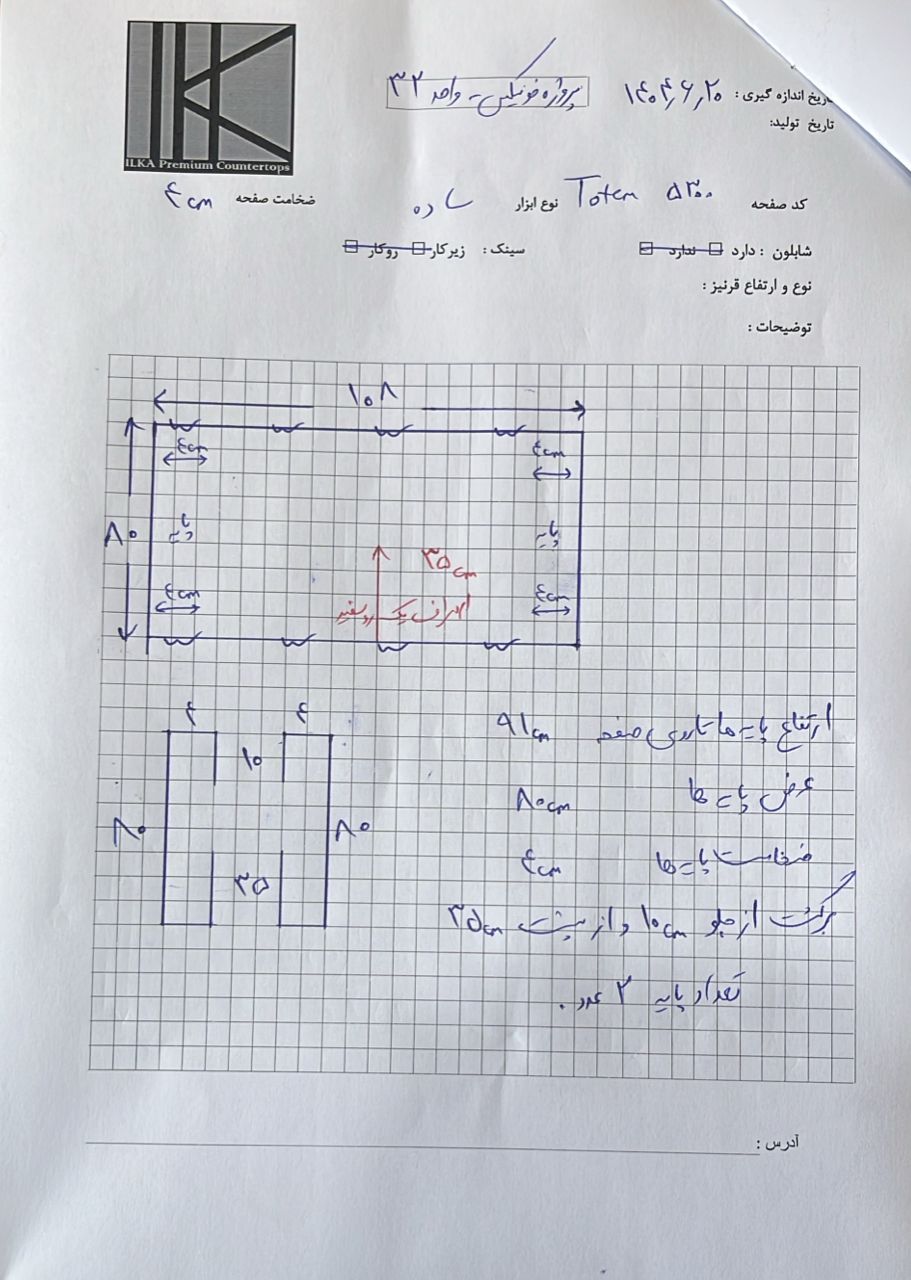 ILKA Premium Countertops
پروژه فونیکس - واحد ۳۲
تاریخ اندازه گیری : ۱۴۰۴٫۶٫۲۰
تاریخ تولید:
کد صفحه Totem ۵۳۰۰ نوع ابزار ساده ضخامت صفحه ۴cm
شابلون : دارد ندارد سینک : زیرکار روکار
نوع و ارتفاع قرنیز :
توضیحات :
۱۰۸
۴cm ۴cm
۸۰ پایه پایه
۳۵cm
۴cm ۴cm
اطراف یک رو سفید
۴ ۴
ارتفاع پایه ها تا روی صفحه ۹۱cm
۱۰
عرض پایه ها ۸۰cm
۸۰ ۸۰
ضخامت پایه ها ۴cm
۳۵
برگشت از جلو ۱۰cm و از پشت ۳۵cm
تعداد پایه ۲ عدد .
آدرس :